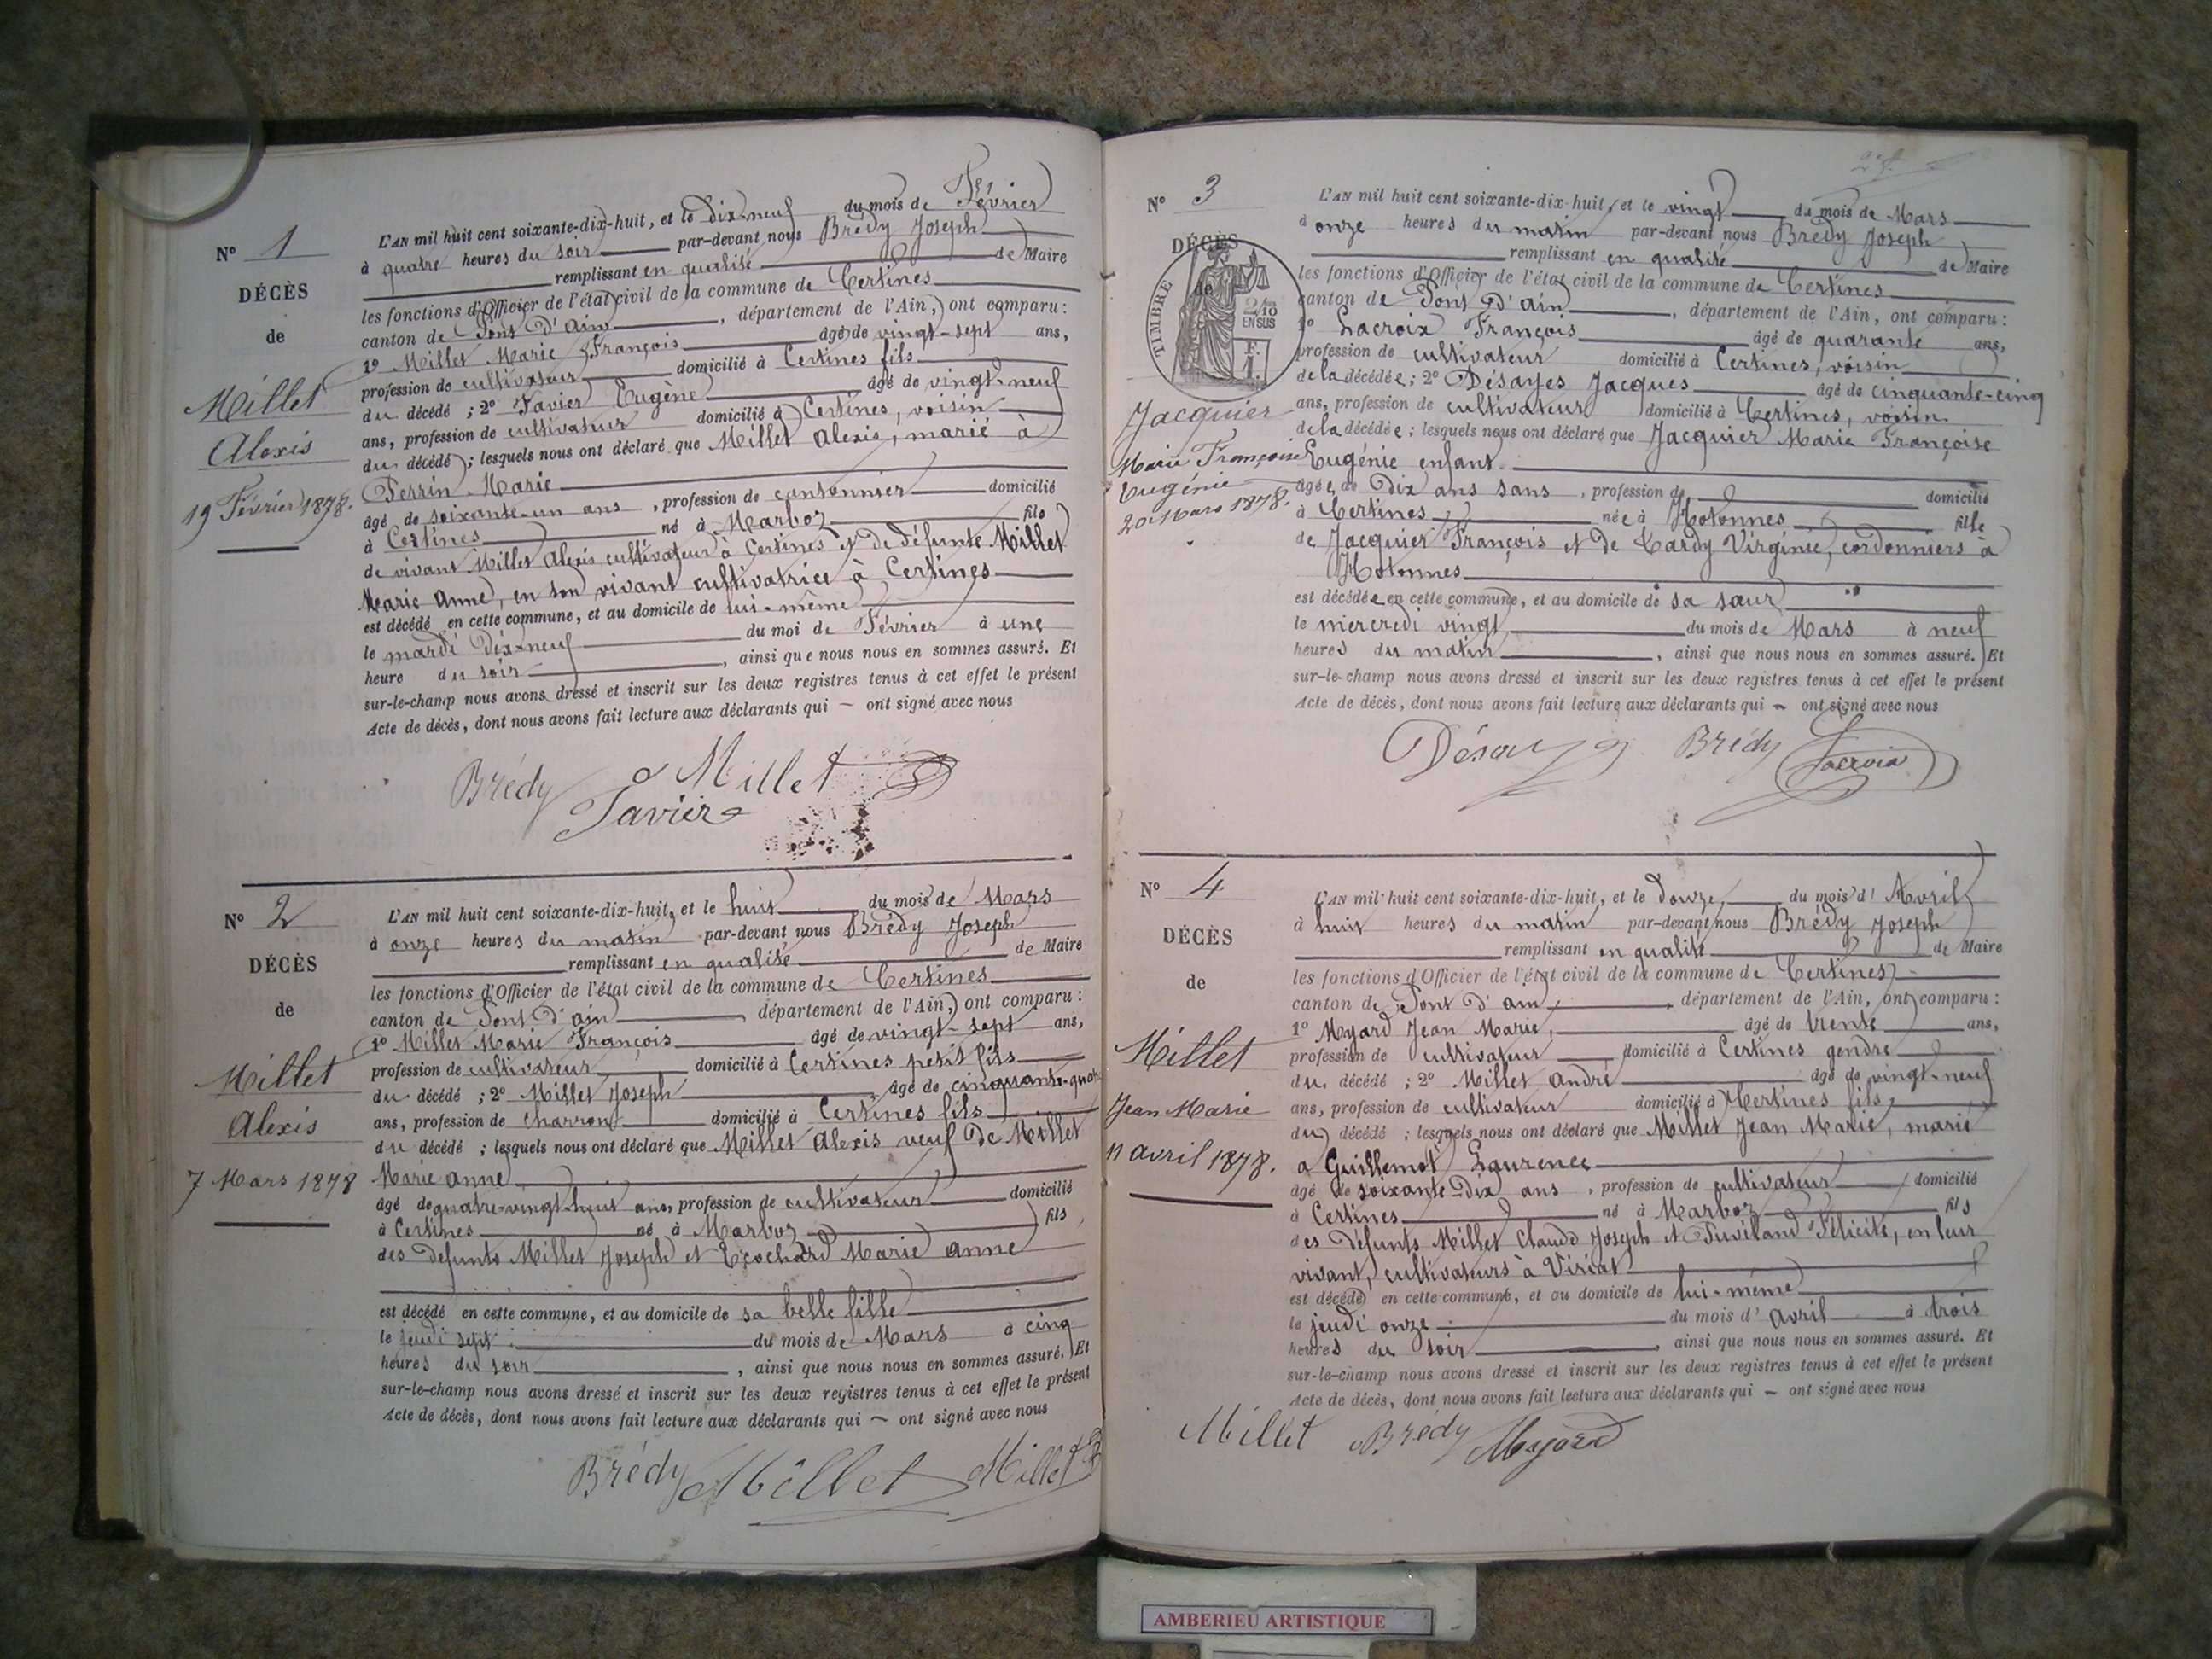 N° 1
DÉCÈS
de
Millet
Alexis
19 Février 1878.
L'AN mil huit cent soixante-dix-huit, et le dix-neuf du mois de Février
à quatre heures du soir par-devant nous Brédy Joseph
remplissant en qualité de Maire
les fonctions d'Officier de l'état civil de la commune de Certines
canton de Pont d'Ain, département de l'Ain, ont comparu :
1° Millet Marie François âgé de vingt-sept ans,
profession de cultivateur domicilié à Certines fils
du décédé ; 2° Tavier Eugène âgé de vingt-neuf
ans, profession de cultivateur domicilié à Certines, voisin
du décédé ; lesquels nous ont déclaré que Millet Alexis, marié à
Perrin Marie
âgé de soixante-un ans, profession de cantonnier domicilié
à Certines né à Marboz fils
de vivant Millet Alexis cultivateur à Certines et de défunte Millet
Marie Anne, en son vivant cultivatrice à Certines
est décédé en cette commune, et au domicile de lui-même
le mardi dix-neuf du moi de Février à une
heure du soir, ainsi que nous nous en sommes assuré. Et
sur-le-champ nous avons dressé et inscrit sur les deux registres tenus à cet effet le présent
Acte de décès, dont nous avons fait lecture aux déclarants qui — ont signé avec nous
Brédy Millet
Tavier
N° 2
DÉCÈS
de
Millet
Alexis
7 Mars 1878
L'AN mil huit cent soixante-dix-huit, et le huit du mois de Mars
à onze heures du matin par-devant nous Brédy Joseph
remplissant en qualité de Maire
les fonctions d'Officier de l'état civil de la commune de Certines
canton de Pont d'ain, département de l'Ain, ont comparu :
1° Millet Marie François âgé de vingt-sept ans,
profession de cultivateur domicilié à Certines petit fils
du décédé ; 2° Millet Joseph âgé de cinquante-quatre
ans, profession de charron domicilié à Certines fils
du décédé ; lesquels nous ont déclaré que Millet Alexis veuf de Millet
Marie anne
âgé de quatre-vingt-huit ans, profession de cultivateur domicilié
à Certines né à Marboz fils
des défunts Millet Joseph et Marie anne
est décédé en cette commune, et au domicile de sa belle fille
le jeudi sept du mois de Mars à cinq
heures du soir, ainsi que nous nous en sommes assuré. Et
sur-le-champ nous avons dressé et inscrit sur les deux registres tenus à cet effet le présent
Acte de décès, dont nous avons fait lecture aux déclarants qui — ont signé avec nous
Brédy Millet Millet
N° 3
DÉCÈS
de
TIMBRE
2/10
EN SUS
F.
1.
Jacquier
Marie Françoise
Eugénie
20 Mars 1878.
L'AN mil huit cent soixante-dix-huit, et le vingt du mois de Mars
à onze heures du matin par-devant nous Brédy Joseph
remplissant en qualité de Maire
les fonctions d'Officier de l'état civil de la commune de Certines
canton de Pont d'ain, département de l'Ain, ont comparu :
1° Lacroix François âgé de quarante ans,
profession de cultivateur domicilié à Certines, voisin
de la décédée ; 2° Désayes Jacques âgé de cinquante-cinq
ans, profession de cultivateur domicilié à Certines, voisin
de la décédée ; lesquels nous ont déclaré que Jacquier Marie Françoise
Eugénie enfant
âgée de Dix ans sans, profession de domicilié
à Certines née à Hotonnes fille
de Jacquier François et de Cardy Virginie, cordonniers à
Hotonnes
est décédée en cette commune, et au domicile de sa sœur
le mercredi vingt du mois de Mars à neuf
heures du matin, ainsi que nous nous en sommes assuré. Et
sur-le-champ nous avons dressé et inscrit sur les deux registres tenus à cet effet le présent
Acte de décès, dont nous avons fait lecture aux déclarants qui — ont signé avec nous
Désayes Brédy Lacroix
N° 4
DÉCÈS
de
Millet
Jean Marie
11 avril 1878.
L'AN mil huit cent soixante-dix-huit, et le douze, du mois d'Avril
à huit heures du matin par-devant nous Brédy Joseph
remplissant en qualité de Maire
les fonctions d'Officier de l'état civil de la commune de Certines
canton de Pont d'ain, département de l'Ain, ont comparu :
1° Myard Jean Marie, âgé de trente ans,
profession de cultivateur domicilié à Certines gendre
du décédé ; 2° Millet André âgé de vingt-neuf
ans, profession de cultivateur domicilié à Certines fils
du décédé ; lesquels nous ont déclaré que Millet Jean Marie, marié
a Guillemot Laurence
âgé de soixante-Dix ans, profession de cultivateur domicilié
à Certines né à Marboz fils
des défunts Millet Claude Joseph et Puvilland Félicité, en leur
vivant, cultivateurs à Viriat
est décédé en cette commune, et au domicile de lui-même
le jeudi onze du mois d'avril à trois
heures du soir, ainsi que nous nous en sommes assuré. Et
sur-le-champ nous avons dressé et inscrit sur les deux registres tenus à cet effet le présent
Acte de décès, dont nous avons fait lecture aux déclarants qui — ont signé avec nous
Millet Brédy Myard
AMBERIEU ARTISTIQUE